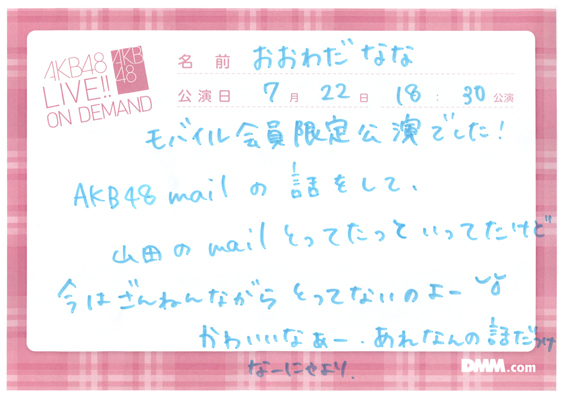 AKB48
LIVE!!
ON DEMAND
AKB
48
名前 おおわだなな
公演日 7月 22日 18:30公演
モバイル会員限定公演でした!
AKB48 mail の話をして、
山田の mail とってたっていってたけど
今はざんねんながらとってないのよー
かわいいなぁー.あれなんの話だっけ
なーにゃより.
DMM.com